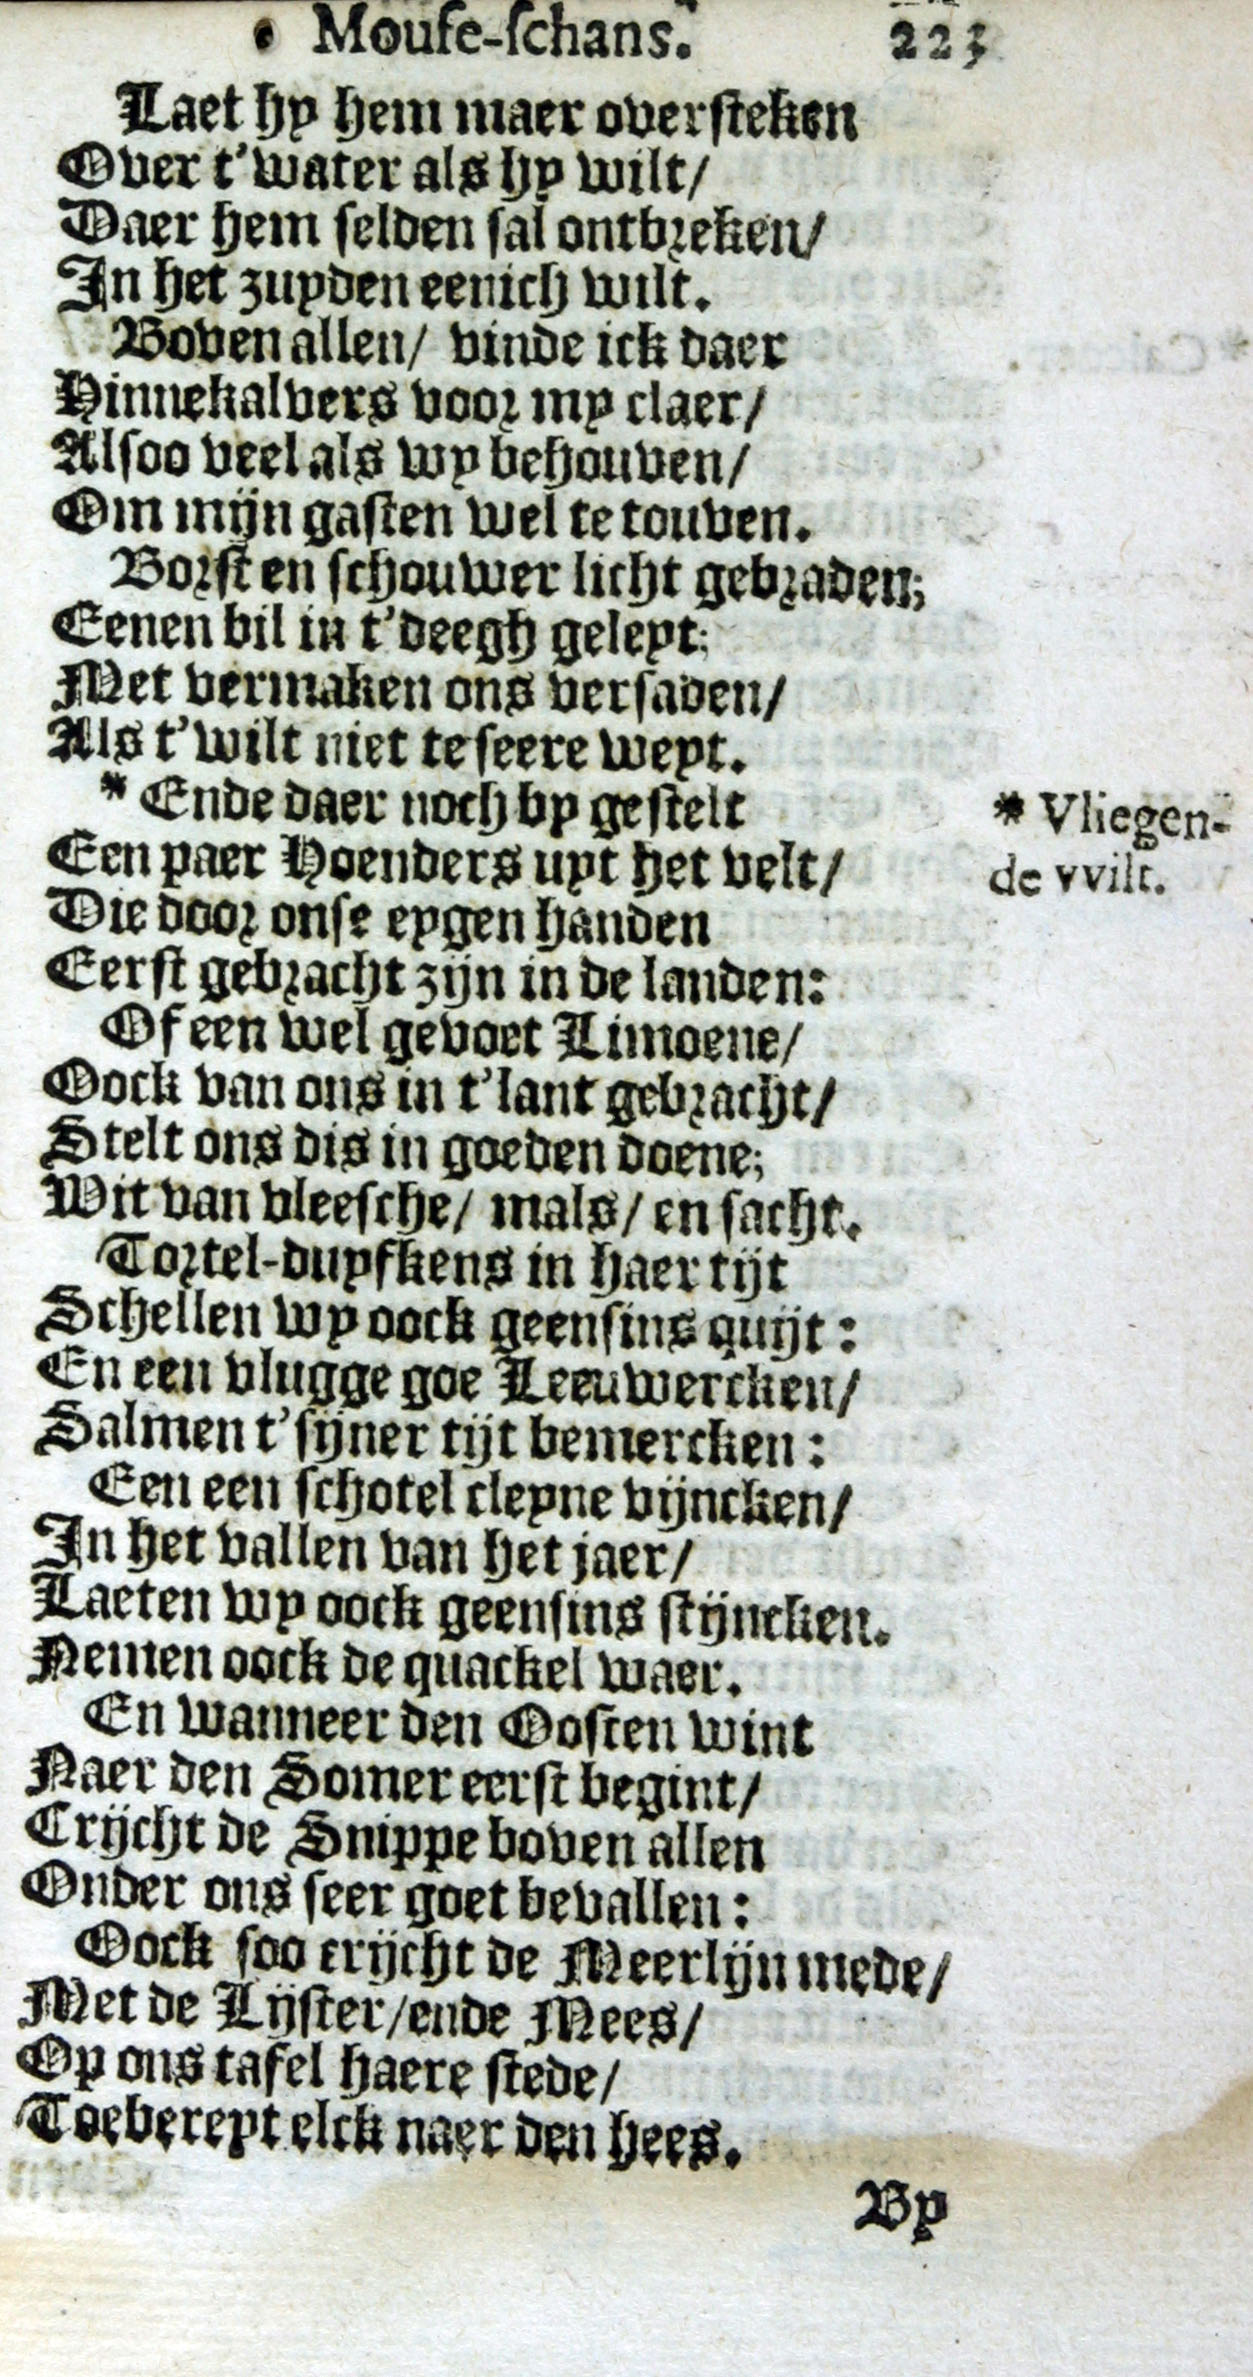 Moufe-ſchans. 223
Laet hy hem maer overſteken
Over t'water als hy wilt/
Daer hem ſelden ſal ontbreken/
In het zuyden eenich wilt.
Boven allen/ vinde ick daer
Hinnekalvers voor my claer/
Alſoo veel als wy behouven/
Om mijn gaſten wel te touven.
Borſt en ſchouwer licht gebraden;
Eenen bil in t'deegh geleyt;
Met vermaken ons verſaden/
Als t'wilt niet te ſeere weyt.
* Ende daer noch by geſtelt
* Vliegen-
Een paer Hoenders uyt het velt/
de vvilt.
Die door onſe eygen handen
Eerſt gebracht zijn in de landen:
Of een wel gevoet Limoene/
Oock van ons in t'lant gebracht/
Stelt ons dis in goeden doene;
Wit van vleeſche/ mals/ en ſacht.
Tortel-duyfkens in haer tijt
Schellen wy oock geenſins quijt:
En een vlugge goe Leeuwercken/
Salmen t'ſijner tijt bemercken:
Een een ſchotel cleyne vijncken/
In het vallen van het jaer/
Laeten wy oock geenſins ſtijncken.
Nemen oock de quackel waer.
En wanneer den Ooſten wint
Naer den Somer eerſt begint/
Crijcht de Snippe boven allen
Onder ons ſeer goet bevallen:
Oock ſoo crijcht de Meerlijn mede/
Met de Lijſter/ende Mees/
Op ons tafel haere ſtede/
Toebereyt elck naer den hees.
By